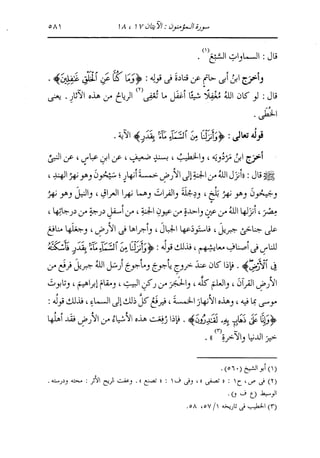 سورة المؤمنون : الآيتان ١٧ ، ١٨
٥٨١
قال : السماوات السَّبْعَ(١) .
وأخرَج ابنُ أبى حاتمٍ عن قتادةَ فى قوله : ﴿ وَمَا كُنَّا عَنِ ٱلْخَلْقِ غَٰفِلِينَ ﴾ .
قال : لو كان اللهُ مُغْفِلًا شيئًا أغفَل ما تُعَفِّى(٢) الرياحُ من هذه الآثارِ . يعنى
الخُطَى .
قولُه تعالى : ﴿ وَأَنزَلْنَا مِنَ ٱلسَّمَآءِ مَآءًۢ بِقَدَرٍ ﴾ الآية .
أخرَج ابنُ مَرْدُويَه ، والخطيبُ ، بسندٍ ضعيفٍ ، عن ابنِ عباسٍ ، عن النبىِّ
ﷺ قال : « أنزَل اللهُ من الجنةِ إلى الأرضِ خمسةَ أنهارٍ ؛ سَيْحونَ وهو نهرُ الهندِ ،
وجَيْحونَ وهو نهرُ بَلْخَ ، ودِجْلةَ والفراتَ وهما نهرا العراقِ ، والنيلَ وهو نهرُ
مِصْرَ ، أنزلها اللهُ من عينٍ واحدةٍ من عيونِ الجنةِ ، من أسفلِ درجةٍ من درجاتِها ،
على جناحَىْ جبريلَ ، فاستودَعها الجبالَ ، وأجراها فى الأرضِ ، وجعَلها منافعَ
للناسِ فى أصنافِ معايشِهم ، فذلك قولُه : ﴿ وَأَنزَلْنَا مِنَ ٱلسَّمَآءِ مَآءًۢ بِقَدَرٍ فَأَسْكَنَّٰهُ
فِى ٱلْأَرْضِ ﴾ . فإذا كان عندَ خروجِ يأجوجَ ومأجوجَ أرسَل اللهُ جبريلَ فرفَع من
الأرضِ القرآنَ ، والعلمَ كلَّه ، والحجَرَ من ركنِ البيتِ ، ومقامَ إبراهيمَ ، وتابوتَ
موسى بما فيه ، وهذه الأنهارَ الخمسةَ ، فيرفَعُ كلَّ ذلك إلى السماءِ ، فذلك قولُه :
﴿ وَإِنَّا عَلَىٰ ذَهَابٍۭ بِهِۦ لَقَٰدِرُونَ ﴾ . فإذا رُفِعَت هذه الأشياءُ من الأرضِ فقَد أهلُها
خيرَ الدنيا والآخرةِ »(٣) .
(١) أبو الشيخ (٥٦٠) .
(٢) فى ص ، ح١ : « تصفى » ، وفى ف١ : « تصنع » . وعفت الريح الأثر : محته ودرسته .
الوسيط (ع ف و) .
(٣) الخطيب فى تاريخه ١/ ٥٧ ، ٥٨ .